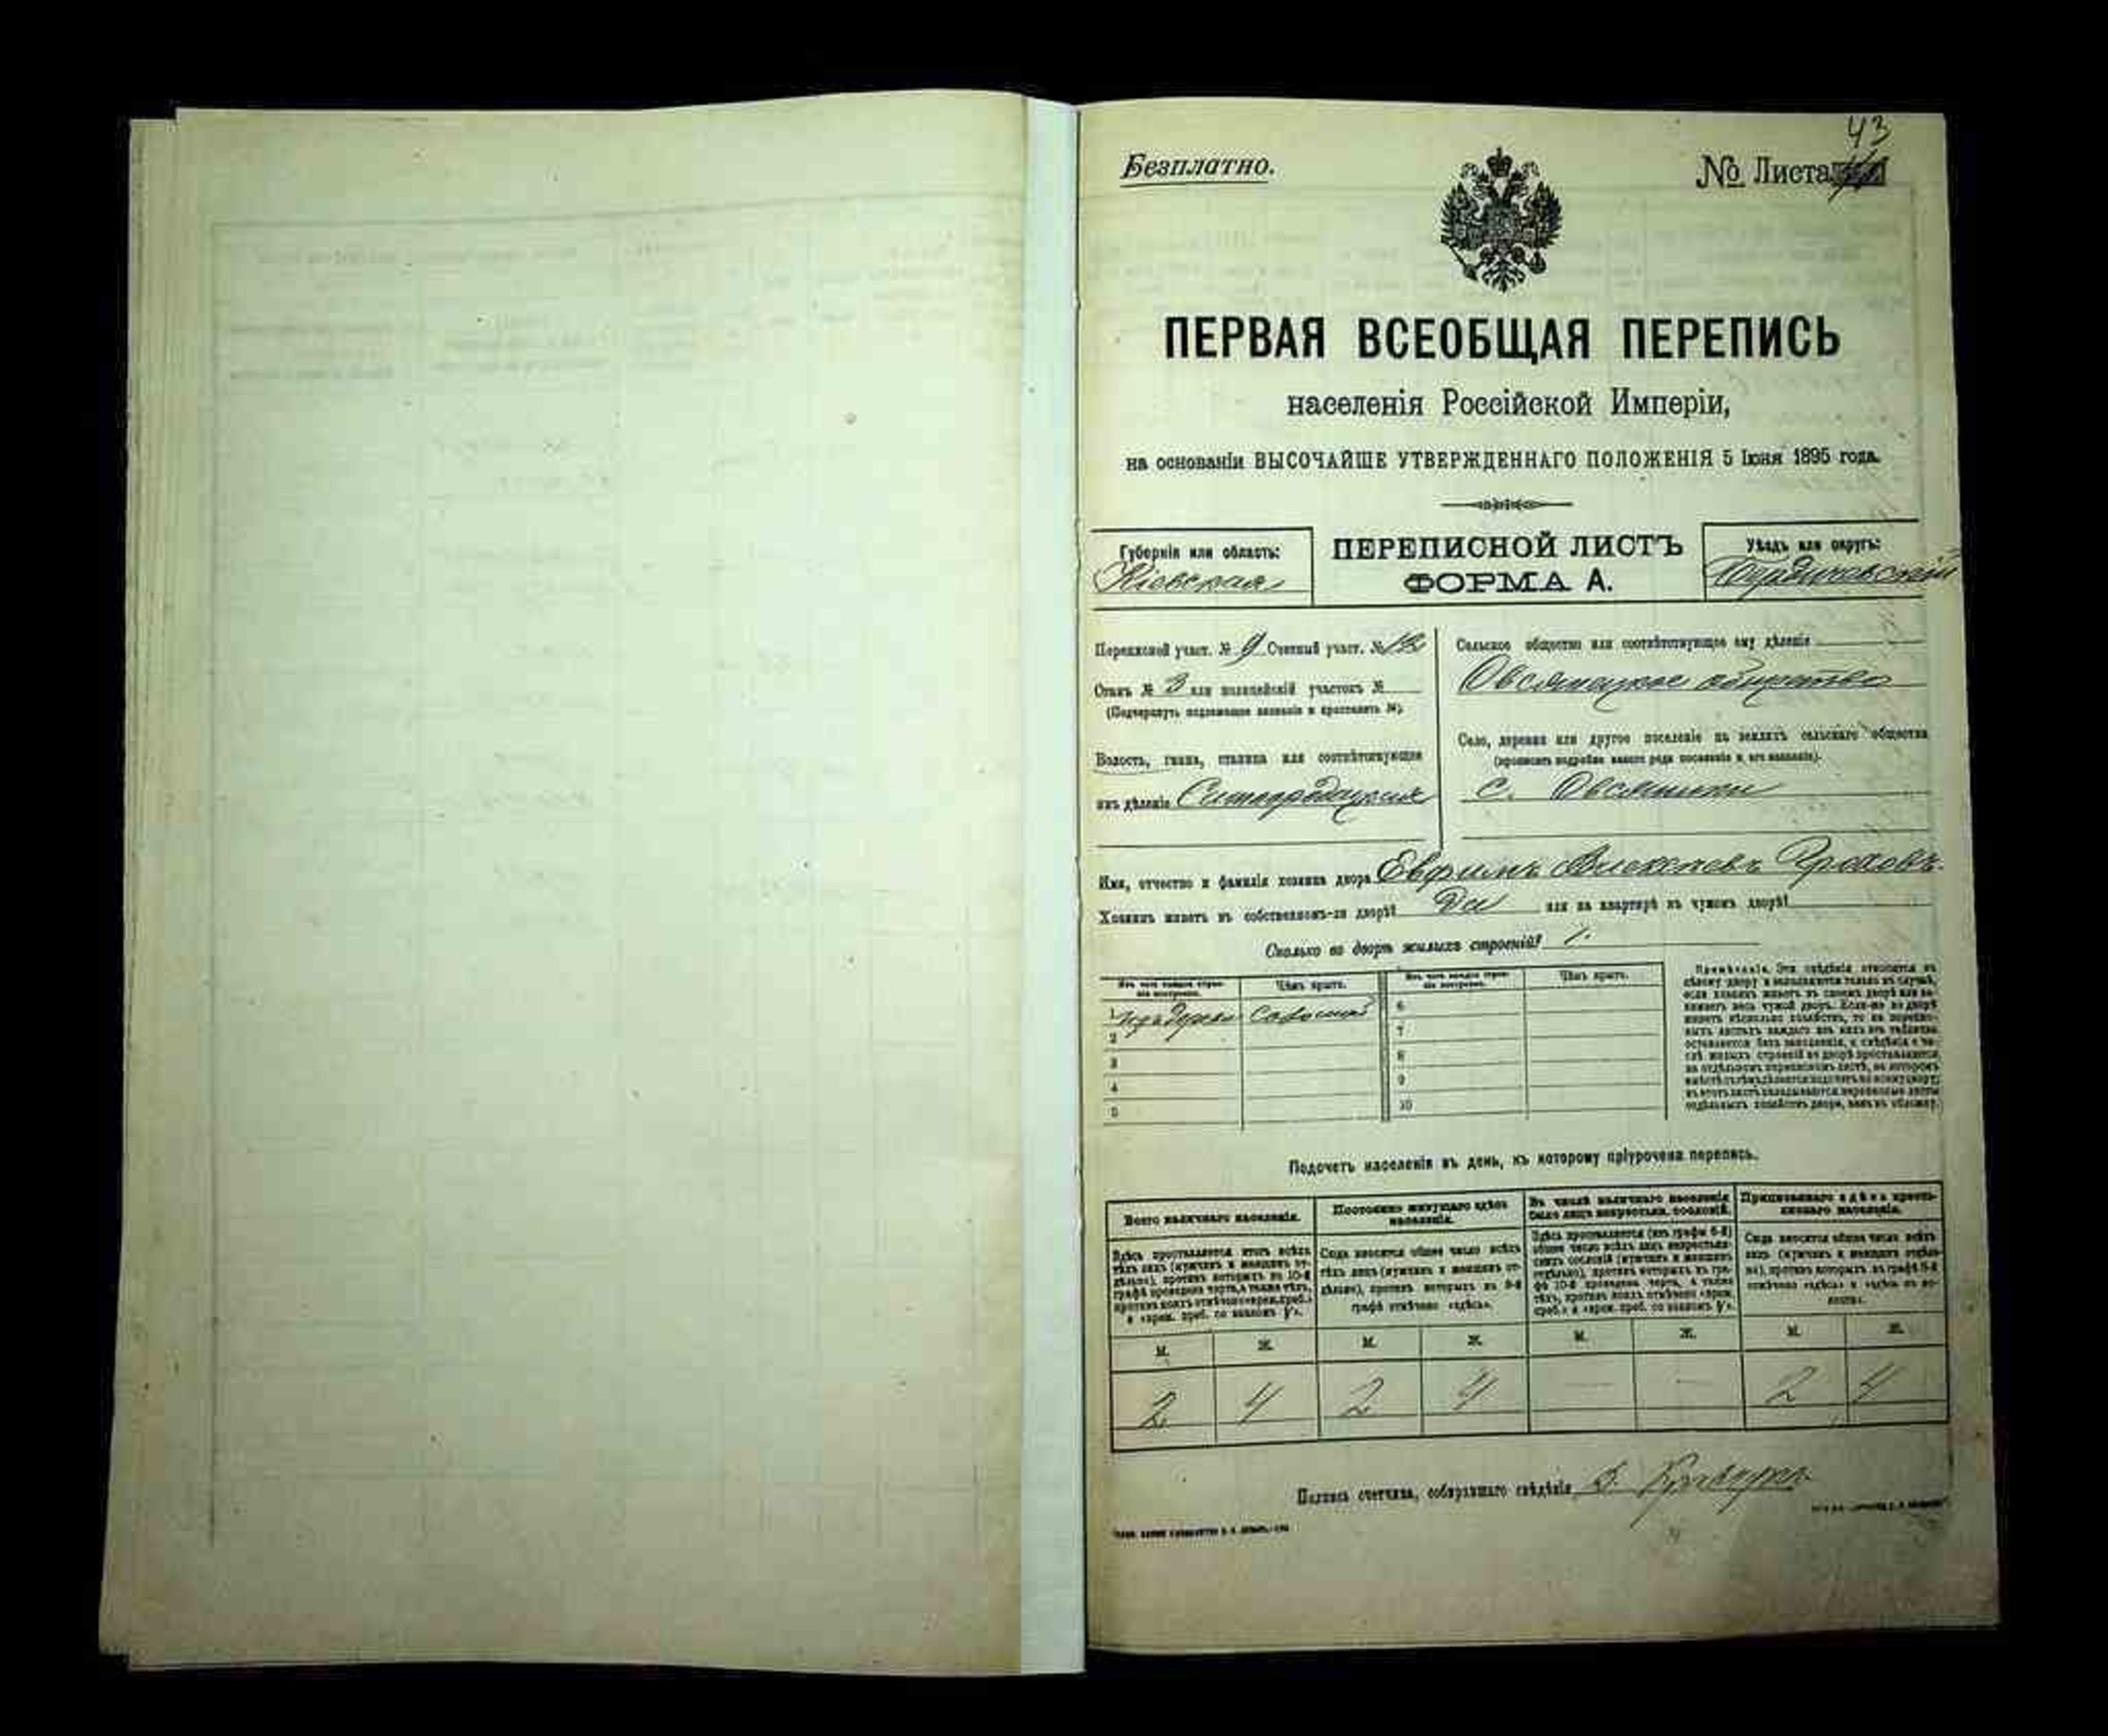 43
Безплатно.
№ Листа
ПЕРВАЯ ВСЕОБЩАЯ ПЕРЕПИСЬ
населенія Россійской Имперіи,
на основаніи ВЫСОЧАЙШЕ УТВЕРЖДЕННАГО ПОЛОЖЕНІЯ 5 Іюня 1895 года.
Губернія или область:
Кіевская
ПЕРЕПИСНОЙ ЛИСТЪ
ФОРМА А.
Уѣздъ или округъ:
Бердичевскій
Переписной участ. № 9 Счетный участ. № 12
Станъ № 3 или полицейскій участокъ №
(Подчеркнуть подлежащее названіе и проставить №).
Волость, гмина, станица или соотвѣтствующее
имъ дѣленіе
Сельское общество или соотвѣтствующее ему дѣленіе
Овсянецкое общество
Село, деревня или другое поселеніе на земляхъ сельскаго общества
(прописать подробно какого рода поселеніе и его названіе).
с. Овсяники
Имя, отчество и фамилія хозяина двора Евфимъ Алексѣевъ
Хозяинъ живетъ въ собственномъ-ли дворѣ? Да или на квартирѣ въ чужомъ дворѣ?
Сколько во дворѣ жилыхъ строеній? 1.
Изъ чего каждое строеніе построено.
Чѣмъ крыто.
Изъ чего каждое строеніе построено.
Чѣмъ крыто.
1 Соломой 6
2 7
3 8
4 9
5 10
Примѣчаніе. Эти свѣдѣнія относятся къ
цѣлому двору и заполняются только въ случаѣ,
если хозяинъ живетъ въ своемъ дворѣ или за-
нимаетъ весь чужой дворъ. Если-же во дворѣ
живетъ нѣсколько хозяйствъ, то на перепис-
ныхъ листахъ каждаго изъ нихъ эта табличка
остается безъ заполненія, а свѣдѣнія о чи-
слѣ жилыхъ строеній во дворѣ проставляются
на отдѣльномъ переписномъ листѣ, на которомъ
отдѣльныхъ хозяйствъ двора, какъ въ обложку.
Подсчетъ населенія въ день, къ которому пріурочена перепись.
Всего наличнаго населенія.
Постоянно живущаго здѣсь
населенія.
Въ числѣ наличнаго населенія
было лицъ некрестьян. сословій.
Приписаннаго здѣсь кресть-
янскаго населенія.
Здѣсь проставляется итогъ всѣхъ
тѣхъ лицъ (мужчинъ и женщинъ от-
дѣльно), противъ которыхъ въ 10-й
графѣ проведена черта, а также тѣхъ,
противъ коихъ отмѣчено «врем. преб.»
Сюда вносится общее число всѣхъ
тѣхъ лицъ (мужчинъ и женщинъ от-
дѣльно), противъ которыхъ въ 9-й
графѣ отмѣчено «здѣсь».
Здѣсь проставляется (изъ графы 6-й)
общее число всѣхъ лицъ некрестьян-
скихъ сословій (мужчинъ и женщинъ
отдѣльно), противъ которыхъ въ гра-
фѣ 10-й проведена черта, а также
тѣхъ, противъ коихъ отмѣчено «врем.
Сюда вносится общее число всѣхъ
лицъ (мужчинъ и женщинъ отдѣль-
но), противъ которыхъ въ графѣ 8-й
отмѣчено «здѣсь» и «здѣсь въ во-
лости».
М. Ж. М. Ж. М. Ж. М. Ж.
2 4 2 4 — — 2 4
Подпись счетчика, собиравшаго свѣдѣнія